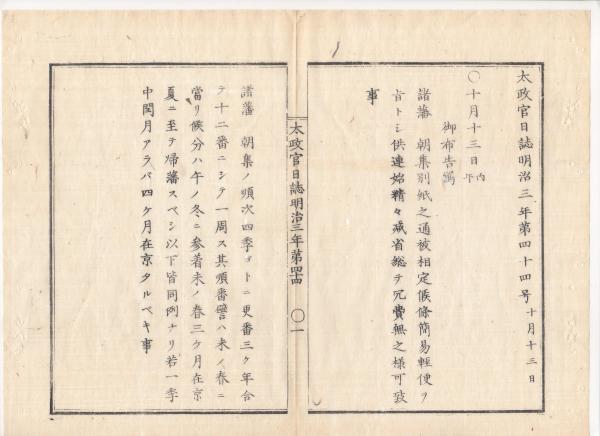 太政官日誌明治三年第四十四号 十月十三日
〇十月十三日 丙午
御布告寫
諸藩 朝集別紙之通被相定候條簡易輕便ヲ
旨トシ供連始精々减省総テ冗費無之様可致
事
太政官日誌明治三年第四四 〇一
諸藩 朝集ノ順次四季ゴトニ更番三ケ年合
テ十二番ニシテ一周ス其順番譬ハ未ノ春ニ
當リ候分ハ午ノ冬ニ参着未ノ春三ケ月在京
夏ニ至テ帰藩スベシ以下皆同例ナリ若一季
中閏月アラバ四ケ月在京タルベキ事